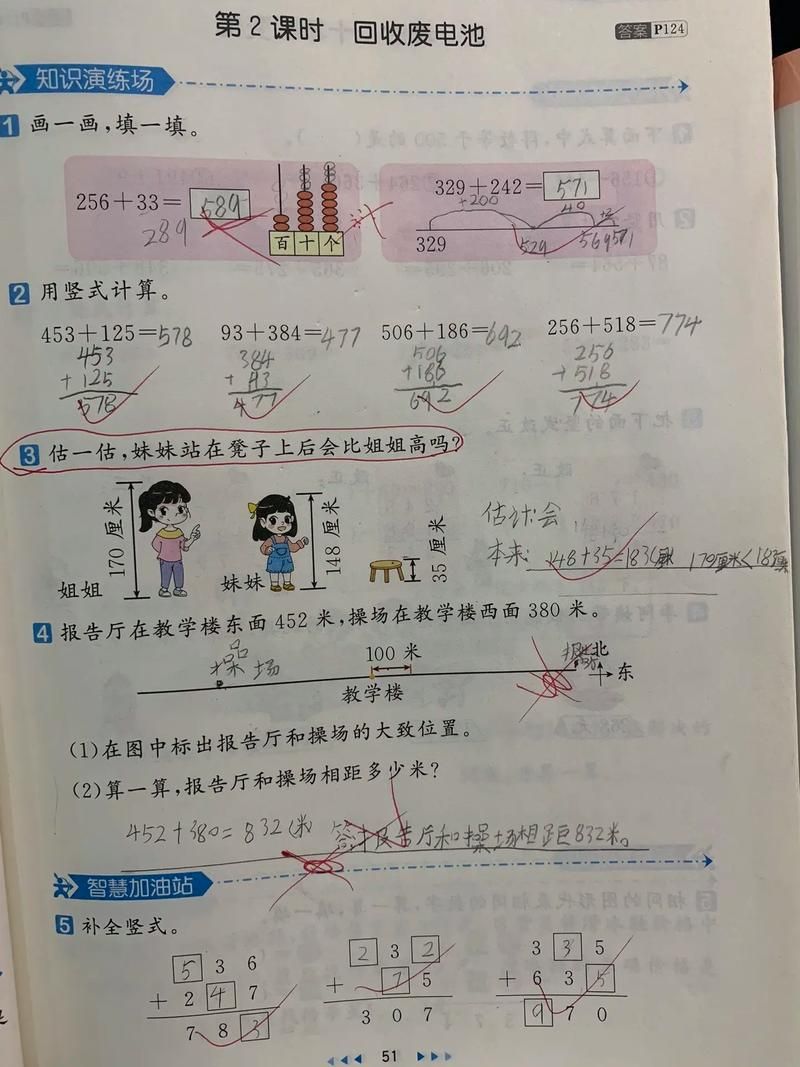 第2课时 回收废电池
答案 P124
知识演练场
1 画一画,填一填。
256+33=589
289
百十个
329+242=571
+200 40 +2
329 529 569 571
2 用竖式计算。
453+125=578 93+384=477 506+186=692 256+518=774
453 384 506 256
+125 +93 +186 +518
578 477 692 774
3 估一估,妹妹站在凳子上后会比姐姐高吗?
170厘米
148厘米
35厘米
姐姐 妹妹
估计:会
本来: 148+35=183(厘米) 170厘米<183厘米
4 报告厅在教学楼东面452米,操场在教学楼西面380米。
操场 100米 北
东
教学楼
(1)在图中标出报告厅和操场的大致位置。
(2)算一算,报告厅和操场相距多少米?
452+380=832(米) 答:报告厅和操场相距832米。
智慧加油站
5 补全竖式。
5 3 6 2 3 2 3 3 5
+ 2 4 7 + 7 5 + 6 3 5
7 8 3 3 0 7 9 7 0
51